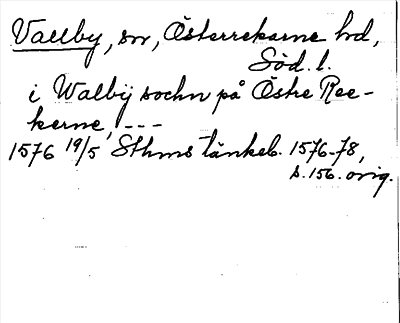 Vallby, sn, Österrekarne hd,
Söd. l.
i Walbÿ sochn på Östre Ree-
kerne, ---
1576 19/5 Sthms tänkeb. 1576-78,
s. 156. orig.